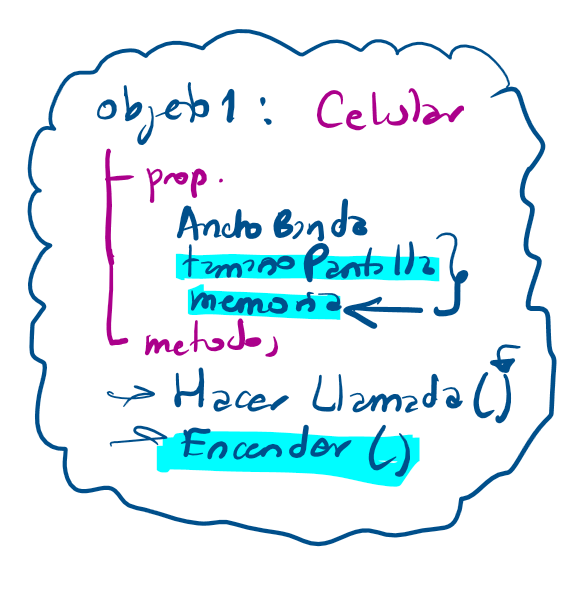 objeto1: Celular
prop.
Ancho Banda
tamano Pantalla
memoria
metodos
Hacer Llamada()
Encender()